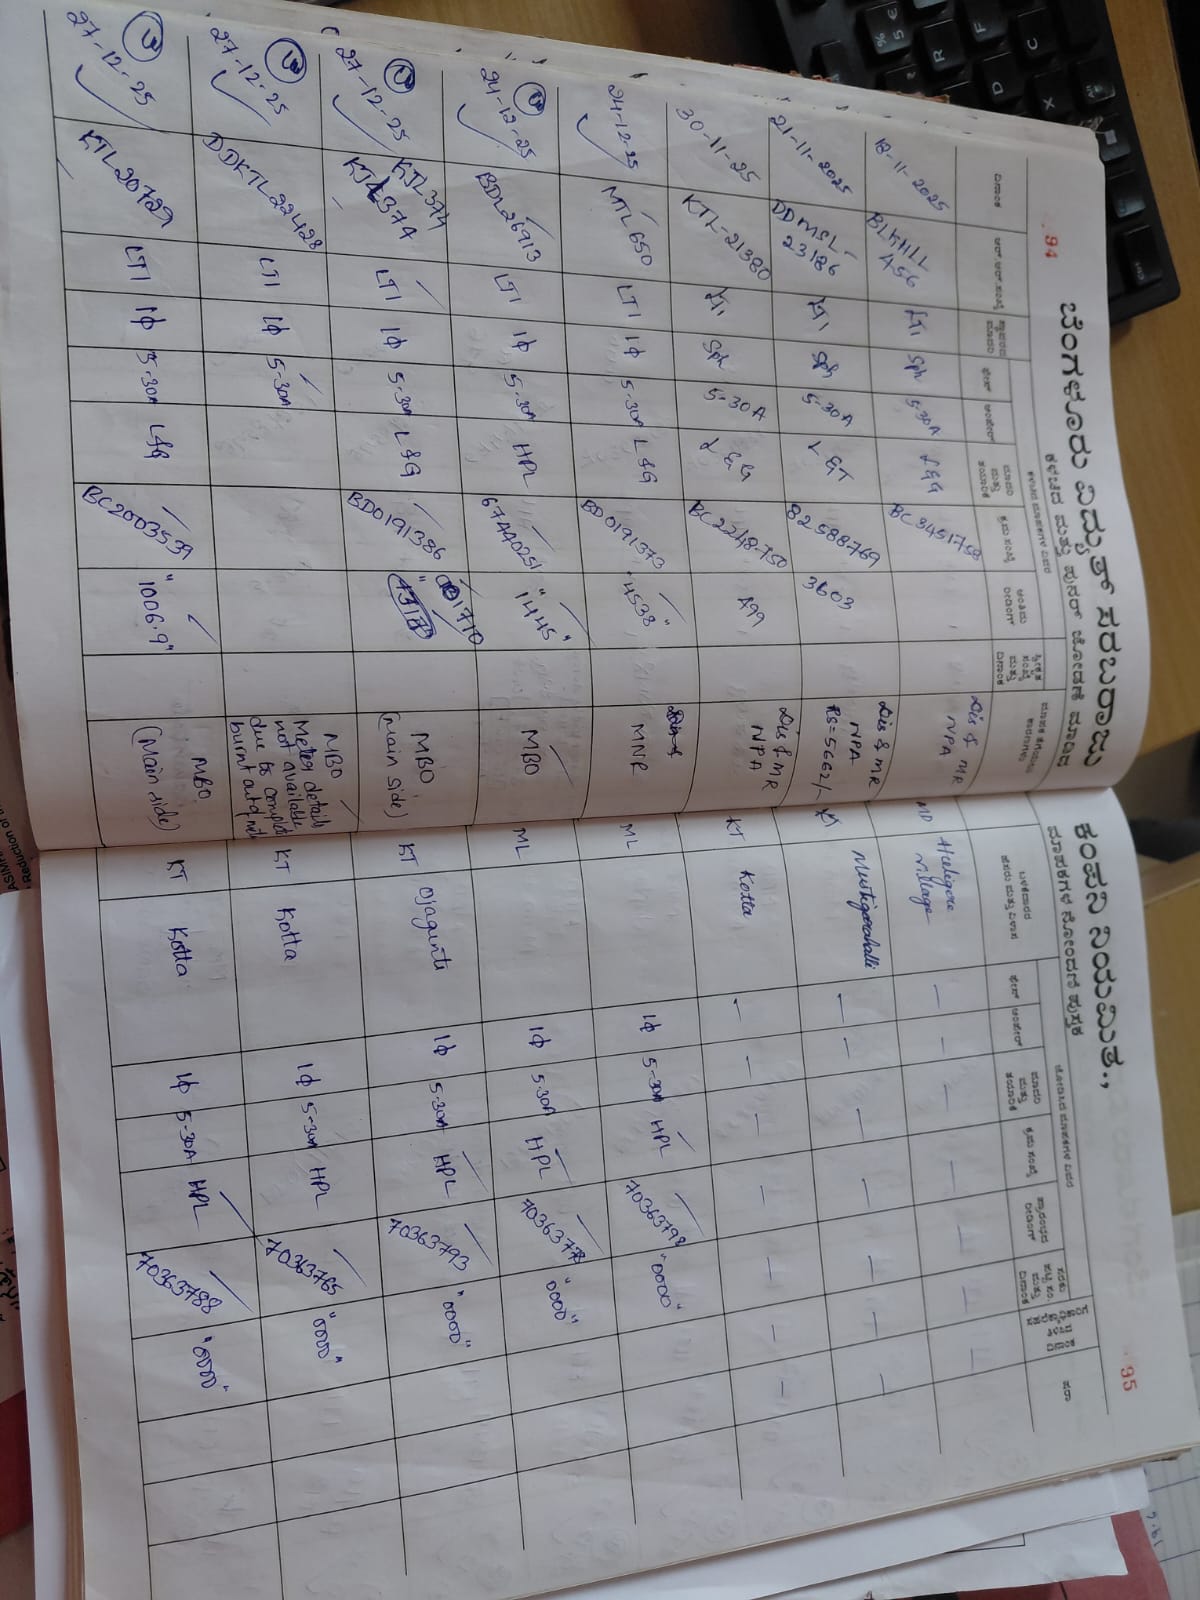 94
ಬೆಂಗಳೂರು ವಿದ್ಯುತ್ ಸರಬರಾಜು
ಕಳಚಿದ ಮತ್ತು ಪುನರ್ ಜೋಡಣೆ ಮಾಡಿದ
ದಿನಾಂಕ ಆರ್.ಆರ್.ಸಂಖ್ಯೆ ಫೇಸ್ ಆಂಪೇರ್ ಕ್ರಮ ಸಂಖ್ಯೆ ಅಂತಿಮ ರೀಡಿಂಗ್
18-11-2025 BLHHLL 456 LT1 Sph 5-30A L&G BC3451758 Dis & MR NPA
21-11-2025 DDMSL-23186 LT1 Sph 5-30A L&T 82588769 3603 Dis & MR NPA RS=5662/-
30-11-25 KTL-21380 LT1 Sph 5-30A L&G BC2248750 499 Dis & MR NPA
24-12-25 MTL650 LT1 1ф 5-30A L&G BD0191373 "4538" MNR
24-12-25 BDL26913 LT1 1ф 5-30A HPL 67440251 "1445" MBO
27-12-25 KTL374 KTL374 LT1 1ф 5-30A L&G BD0191386 1710 MBO (main side)
27-12-25 DDKTL22428 LT1 1ф 5-30A MBO Meter details not available due to complete burnt out of
27-12-25 KTL20729 LT1 1ф 5-30A L&G BC2003539 "1006.9" MBO (Main side)
95
ಕಂಪನಿ ನಿಯಮಿತ.,
ಮಾಪಕಗಳ ನೋಂದಣಿ ಪುಸ್ತಕ
ಫೇಸ್ ಆಂಪೇರ್ ಕ್ರಮ ಸಂಖ್ಯೆ ಪ್ರಾರಂಭದ ರೀಡಿಂಗ್ ಷರಾ
MD Haligere village – – – – – –
KT Mustigarahalli – – – – – – –
KT Kotta – – – – – – –
ML 1ф 5-30A HPL 70363798 "0000"
ML 1ф 5-30A HPL 70363778 "0000"
KT Ojagunte 1ф 5-30A HPL 70363793 "0000"
KT Kotta 1ф 5-30A HPL 70363765 "0000"
KT Kotta 1ф 5-30A HPL 70363788 "0000"